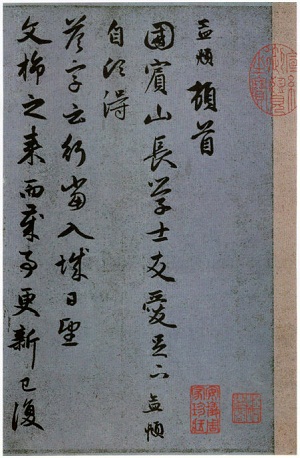 孟頫頓首
國賓山長學士友愛足下孟頫
自頃得
答字云行當入城日望
文斾之來而歲事更新已復